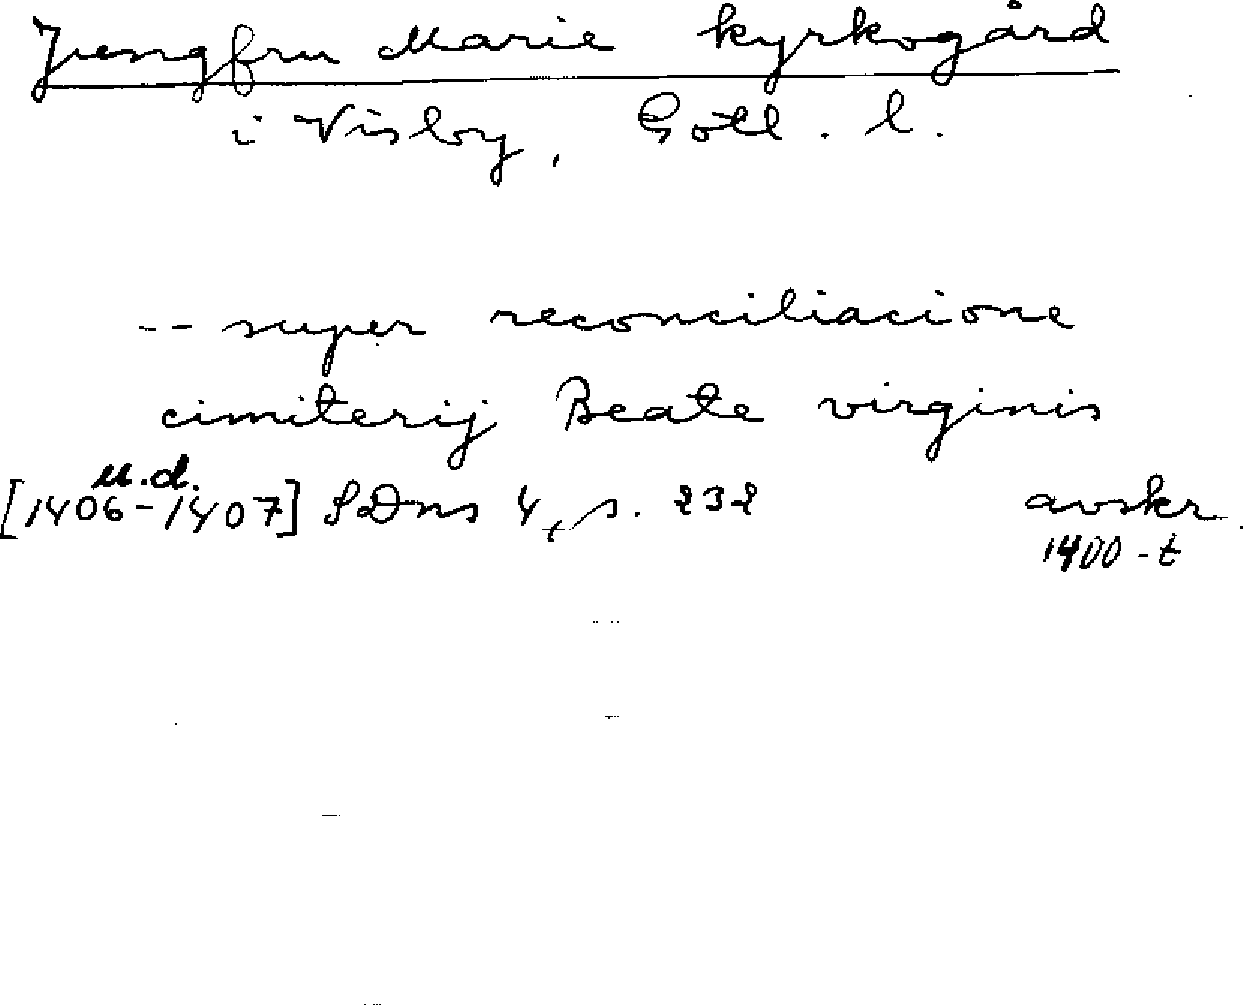 Jungfru Marie kyrkogård
i Visby, Gotl. l.
-- super reconciliacione
cimiterij Beate virginis
u.d.
[1406-1407] SDns 4, s. 232 avskr.
1400-t